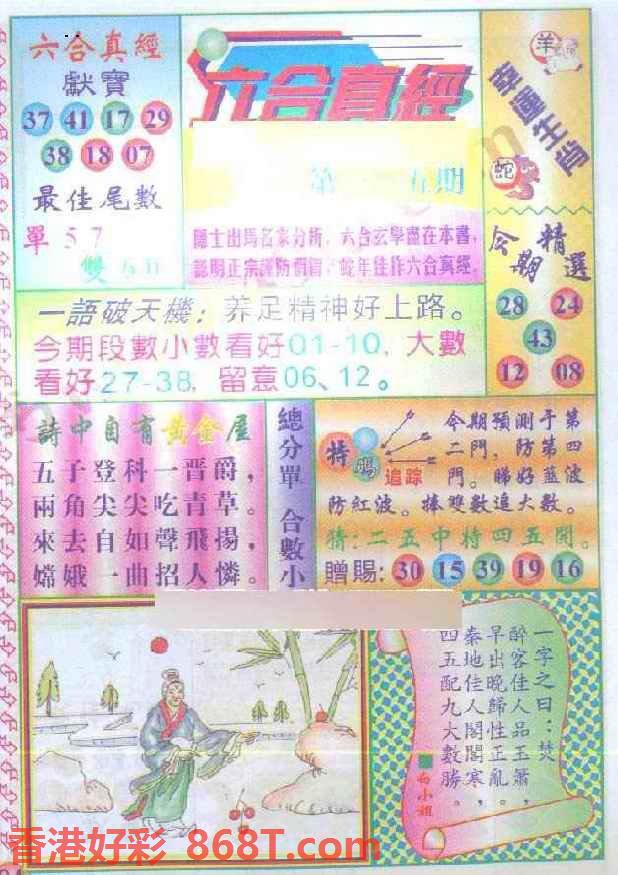 六合真經
獻寶
37 41 17 29
38 18 07
最佳尾數
單 5 7
雙
六合真經
第 五期
隱士出馬名家分析，六合玄學盡在本書，
認明正宗謹防假冒，蛇年佳作六合真經。
羊
幸運生肖
蛇
今期精選
28 24
43
12 08
一語破天機：养足精神好上路。
今期段數小數看好01-10，大數
看好27-38，留意06、12。
詩中自有黃金屋
五子登科一晋爵，
兩角尖尖吃青草。
來去自如聲飛揚，
嫦娥一曲招人憐。
總分單 合數小
特碼
追踪
今期預測于第
二門，防第四
門。睇好藍波
防紅波。捧雙數追大數。
猜：二五中特四五開。
贈賜：30 15 39 19 16
一字之曰：焚
醉客佳人品玉簫，
早出晚歸性正亂。
秦地佳人閣閣寒，
四五配九大數勝。
白小姐
香港好彩 868T.com